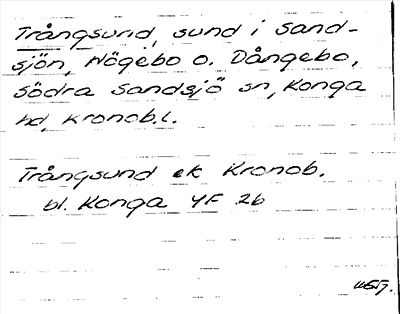 Trångsund, sund i Sand-
sjön, Högebo o. Dångebo,
Södra Sandsjö sn, Konga
hd, Kronob.l.
Trångsund ek Kronob.
bl. Konga 4F 2b